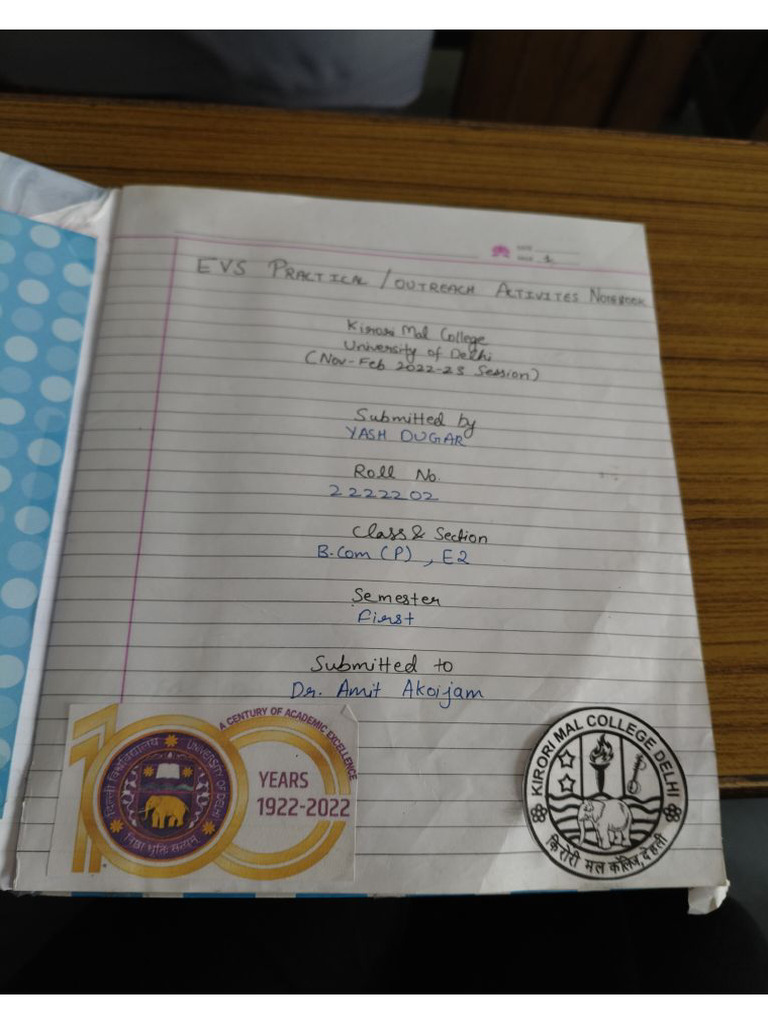 DATE
PAGE 1
EVS PRACTICAL / OUTREACH ACTIVITES NOTEBOOK
Kirori Mal College
University of Delhi
(Nov-Feb 2022-23 Session)
Submitted by
YASH DUGAR
Roll No.
2222202
Class & Section
B.Com (P) , E2
Semester
First
Submitted to
Dr. Amit Akoijam
100
A CENTURY OF ACADEMIC EXCELLENCE
YEARS
1922-2022
दिल्ली विश्वविद्यालय
UNIVERSITY OF DELHI
निष्ठा धृतिः सत्यम्
KIRORI MAL COLLEGE DELHI
किरोरी मल कॉलेज, देहली